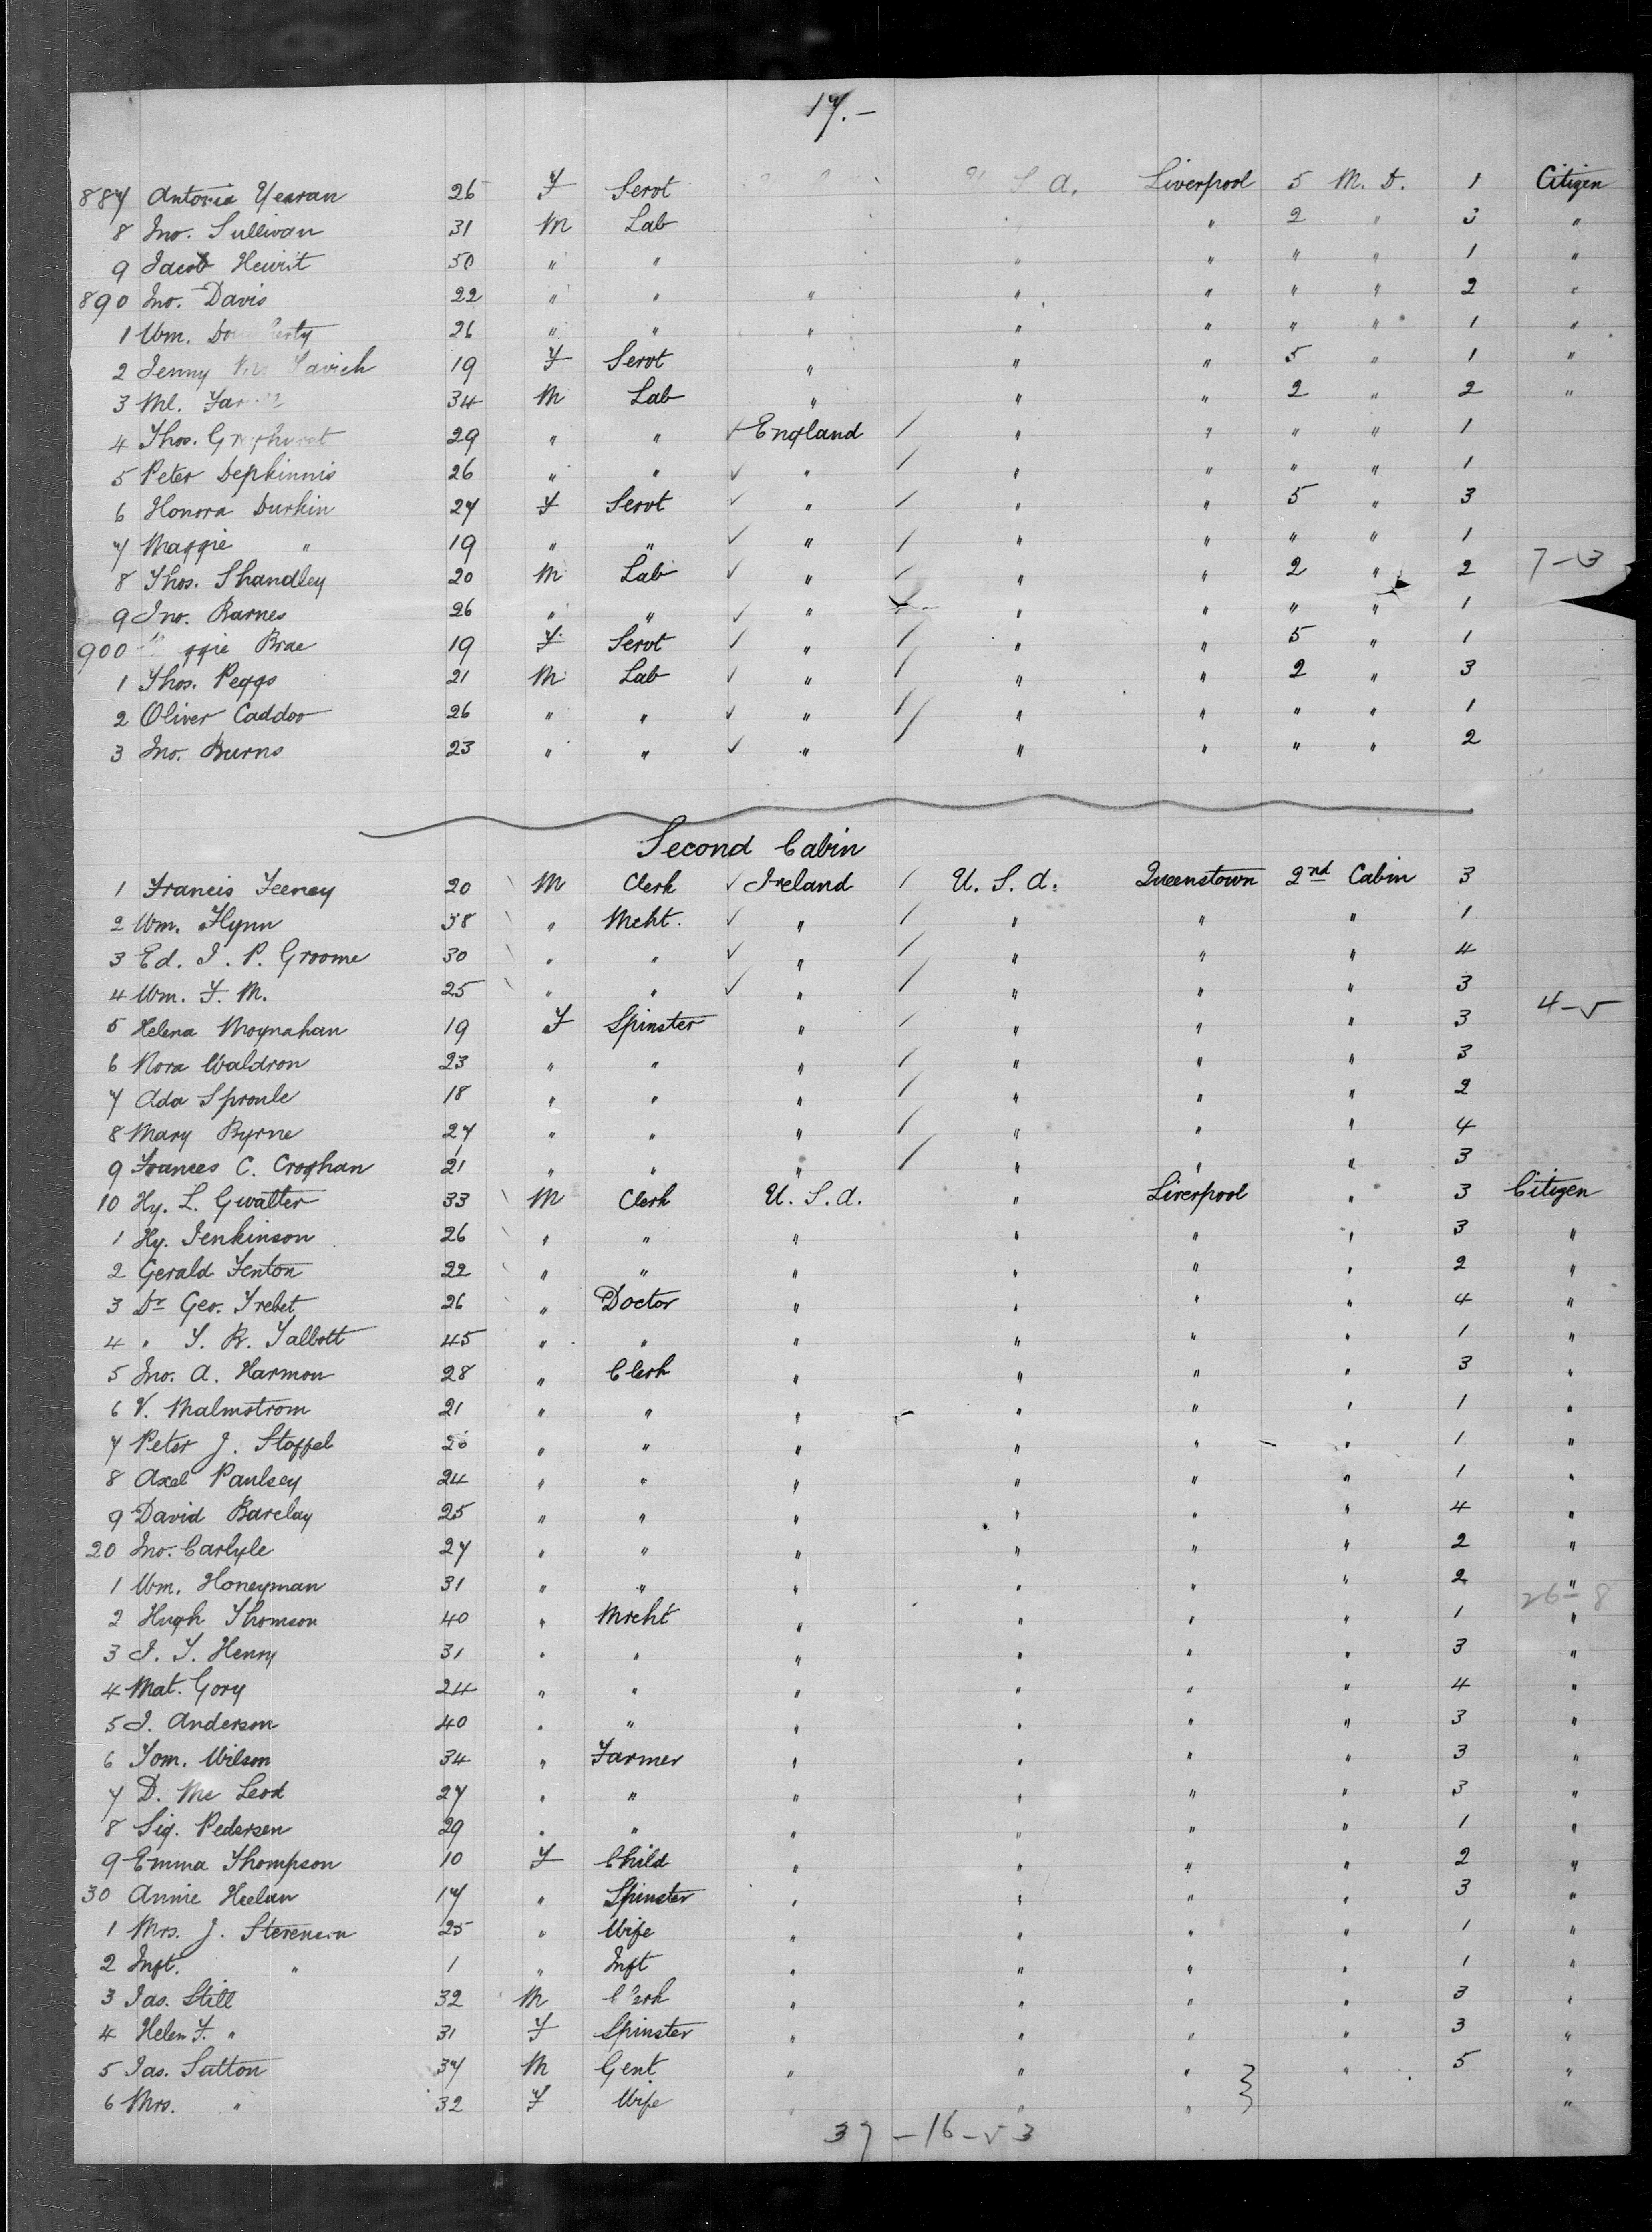 17.-
887 Antonia Yearan 26 F Servt U. S. A. Liverpool 5 M. D. 1 Citizen
8 Jno. Sullivan 31 M Lab " 2 " 3 "
9 Jacob Hewit 50 " " " " " " 1 "
890 Jno. Davis 22 " " " " " " " 2 "
1 Wm. 26 " " " " " " " 1 "
2 Jenny 19 F Servt " " " 5 " 1 "
3 Ml. 34 M Lab " " " 2 " 2 "
4 Thos. 29 " " ✓ England / " " " " 1
5 Peter Depkinnis 26 " " ✓ " / " " " " 1
6 Honora Durkin 27 F Servt ✓ " / " " 5 " 3
7 Maggie " 19 " " ✓ " / " " " " 1
8 Thos. Shandley 20 M Lab ✓ " / " " 2 " 2 7-3
9 Jno. Barnes 26 " " ✓ " " " " " 1
900 Brae 19 F Servt ✓ " / " " 5 " 1
1 Thos. Peggs 21 M Lab ✓ " / " " 2 " 3
2 Oliver Caddoo 26 " " ✓ " / " " " " 1
3 Jno. Burns 23 " " ✓ " / " " " " 2
Second Cabin
1 Francis Feeney 20 \ M Clerk ✓ Ireland / U. S. A. Queenstown 2nd Cabin 3
2 Wm. Flynn 38 \ " Mcht. ✓ " / " " " 1
3 Ed. J. P. Groome 30 \ " " ✓ " / " " " 4
4 Wm. F. M. 25 \ " " ✓ " / " " " 3
5 Helena Moynahan 19 F Spinster " / " " " 3 4-5
6 Nora Waldron 23 " " " / " " " 3
7 Ada Sproule 18 " " " / " " " 2
8 Mary Byrne 27 " " " / " " " 4
9 Frances C. Croghan 21 " " " / " " " 3
10 Hy. L. Gwalter 33 \ M Clerk U. S. A. " Liverpool " 3 Citizen
1 Hy. Jenkinson 26 \ " " " " " " 3 "
2 Gerald Fenton 22 \ " " " " " " 2 "
3 Dr Geo. Trebet 26 \ " Doctor " " " " 4 "
4 " T. B. Talbott 45 " " " " " " 1 "
5 Jno. A. Harmon 28 " Clerk " " " " 3 "
6 V. Malmstrom 21 " " " " " " 1 "
7 Peter J. Stoffel " " " " " " 1 "
8 Axel Paulsey 24 " " " " " " 1 "
9 David Barclay 25 " " " " " " 4 "
20 Jno. Carlyle 27 " " " " " " 2 "
1 Wm. Honeyman 31 " " " " " " 2 "
26-8
2 Hugh Thomson 40 " Mrcht " " " " 1 "
3 J. T. Henry 31 " " " " " " 3 "
4 Mat. Gory 24 " " " " " " 4 "
5 J. Anderson 40 " " " " " " 3 "
6 Tom. Wilson 34 " Farmer " " " " 3 "
7 D. Mc Leod 27 " " " " " " 3 "
8 Sig. Pedersen 29 " " " " " " 1 "
9 Emma Thompson 10 F Child " " " " 2 "
30 Annie Heelan 17 " Spinster " " " " 3 "
1 Mrs. J. Stevenson 25 " Wife " " " " 1 "
2 Inft. " 1 " Inft " " " " 1 "
3 Jas. Still 32 M Clerk " " " " 3 "
4 Helen F. " 31 F Spinster " " " " 3 "
5 Jas. Sutton 37 M Gent " " " " 5 "
6 Mrs. " 32 F Wife " " " "
37-16-53